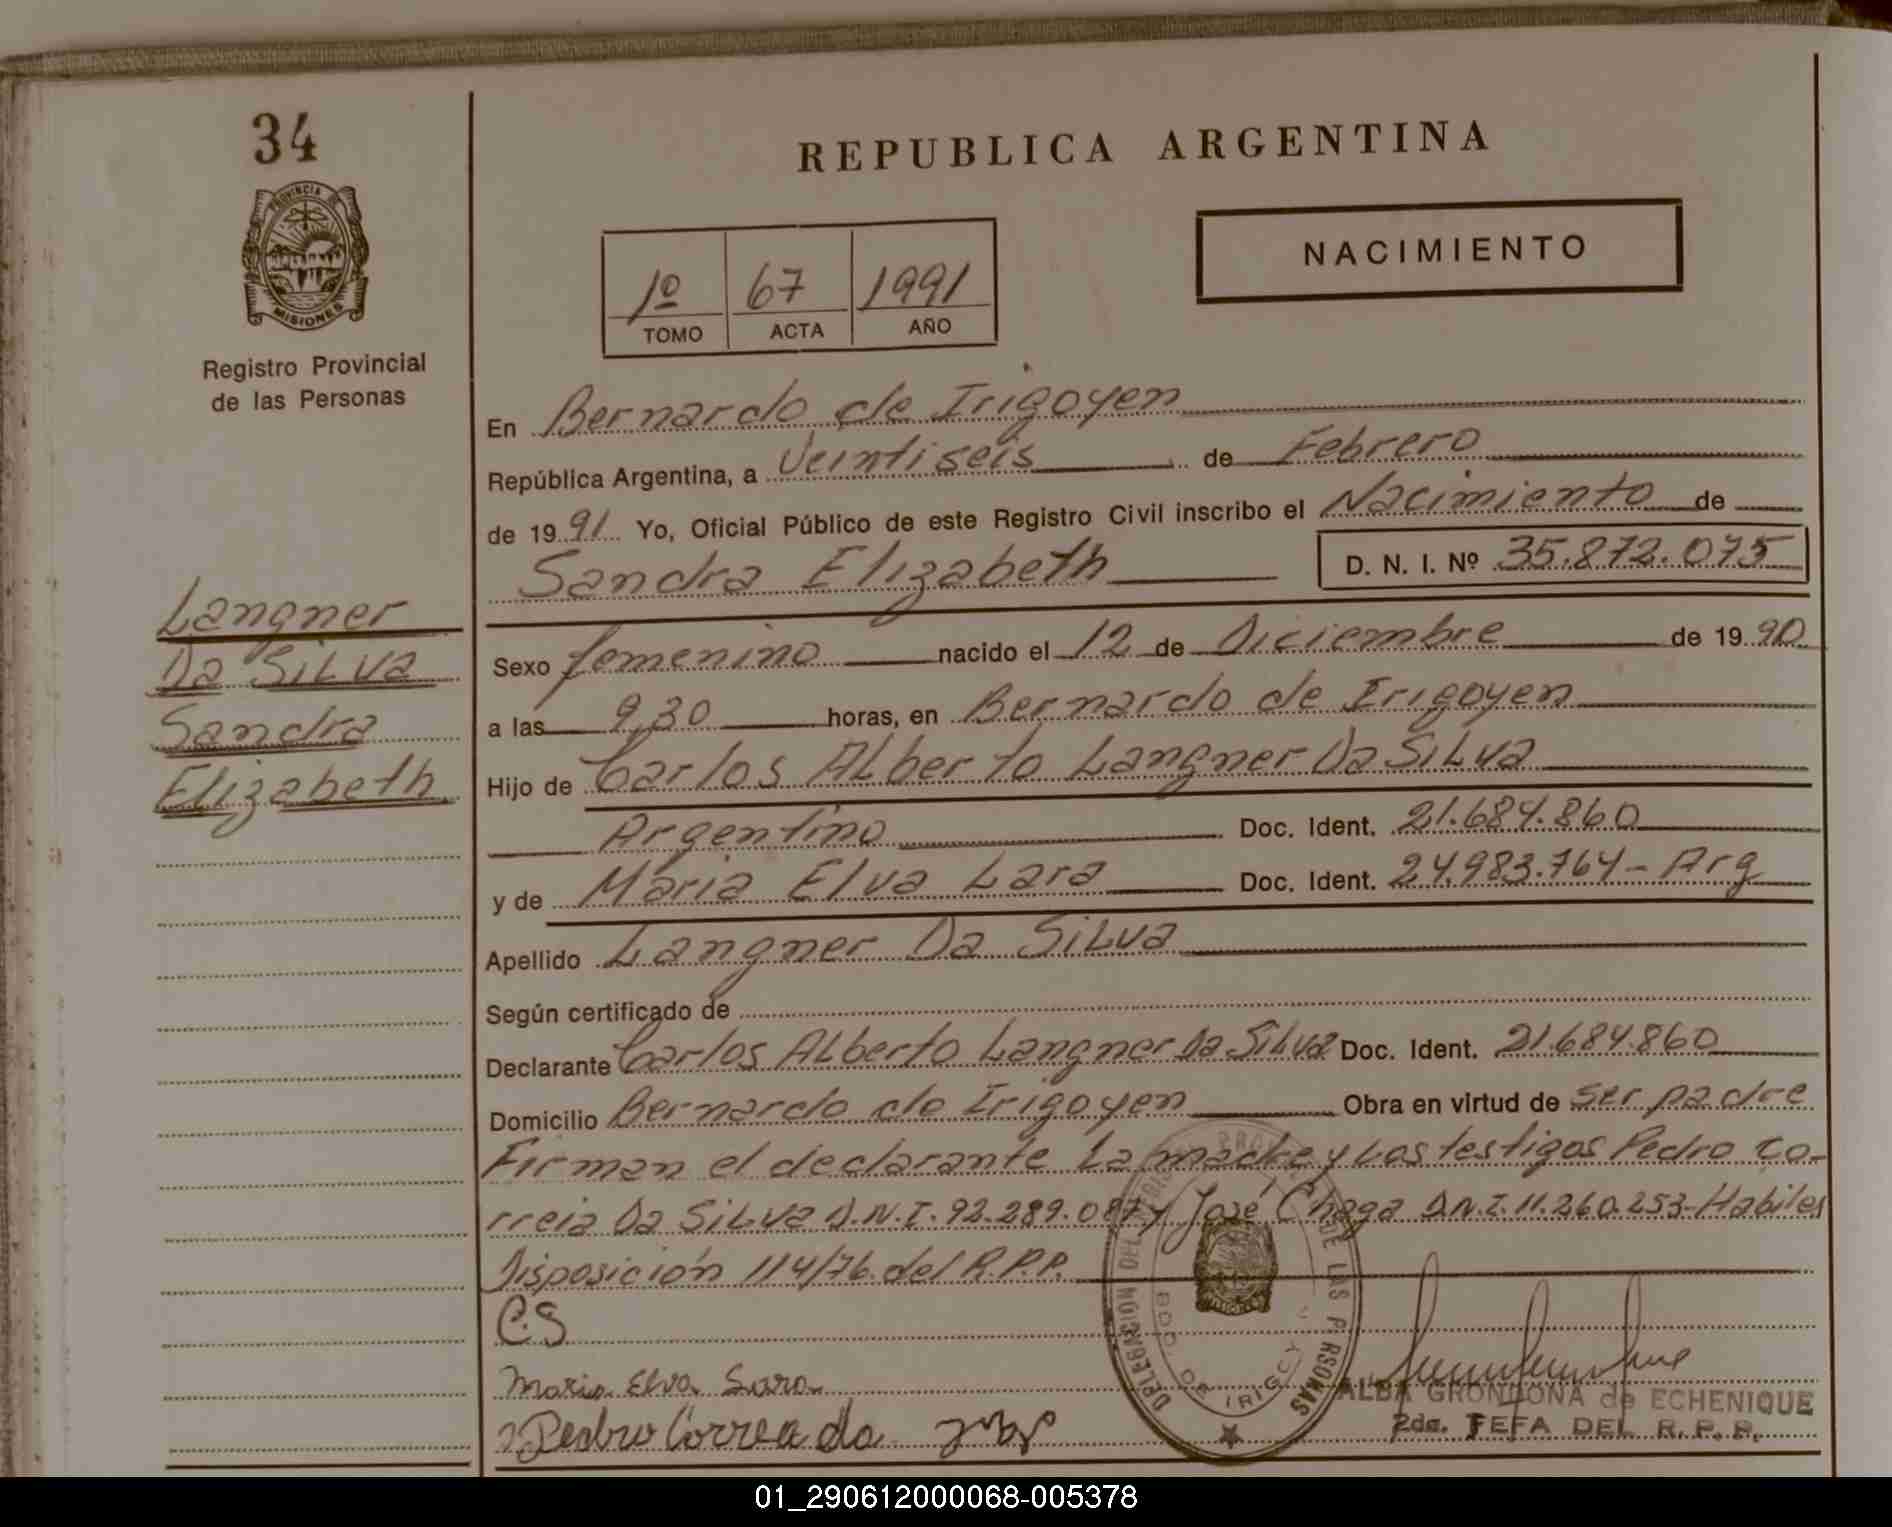 34
PROVINCIA DE
MISIONES
Registro Provincial
de las Personas
Langner
Da Silva
Sandra
Elizabeth
REPUBLICA ARGENTINA
NACIMIENTO
1º 67 1991
TOMO ACTA AÑO
En Bernardo de Irigoyen
República Argentina, a Veintiseis de Febrero
de 1991 Yo, Oficial Público de este Registro Civil inscribo el Nacimiento de
Sandra Elizabeth D. N. I. Nº 35.872.075
Sexo femenino nacido el 12 de Diciembre de 1990
a las 9,30 horas, en Bernardo de Irigoyen
Hijo de Carlos Alberto Langner Da Silva
Argentino Doc. Ident. 21.684.860
y de Maria Elva Lara Doc. Ident. 24.983.764 - Arg
Apellido Langner Da Silva
Según certificado de
Declarante Carlos Alberto Langner Da Silva Doc. Ident. 21.684.860
Domicilio Bernardo de Irigoyen Obra en virtud de ser padre
Firman el declarante La madre y Los testigos Pedro Co-
rreia Da Silva D.N.I. 92.289.087 y José Chaga D.N.I. 11.260.253- Habiles
Disposición 114/76 del R.P.P.
C.S
Maria Elva Lara
Pedro Correa da
DELEGACION DEL REGISTRO PROVINCIAL DE LAS PERSONAS
BDO DE IRIGOYEN
ALBA GRONDONA de ECHENIQUE
2da. JEFA DEL R. P. P.
01_290612000068-005378